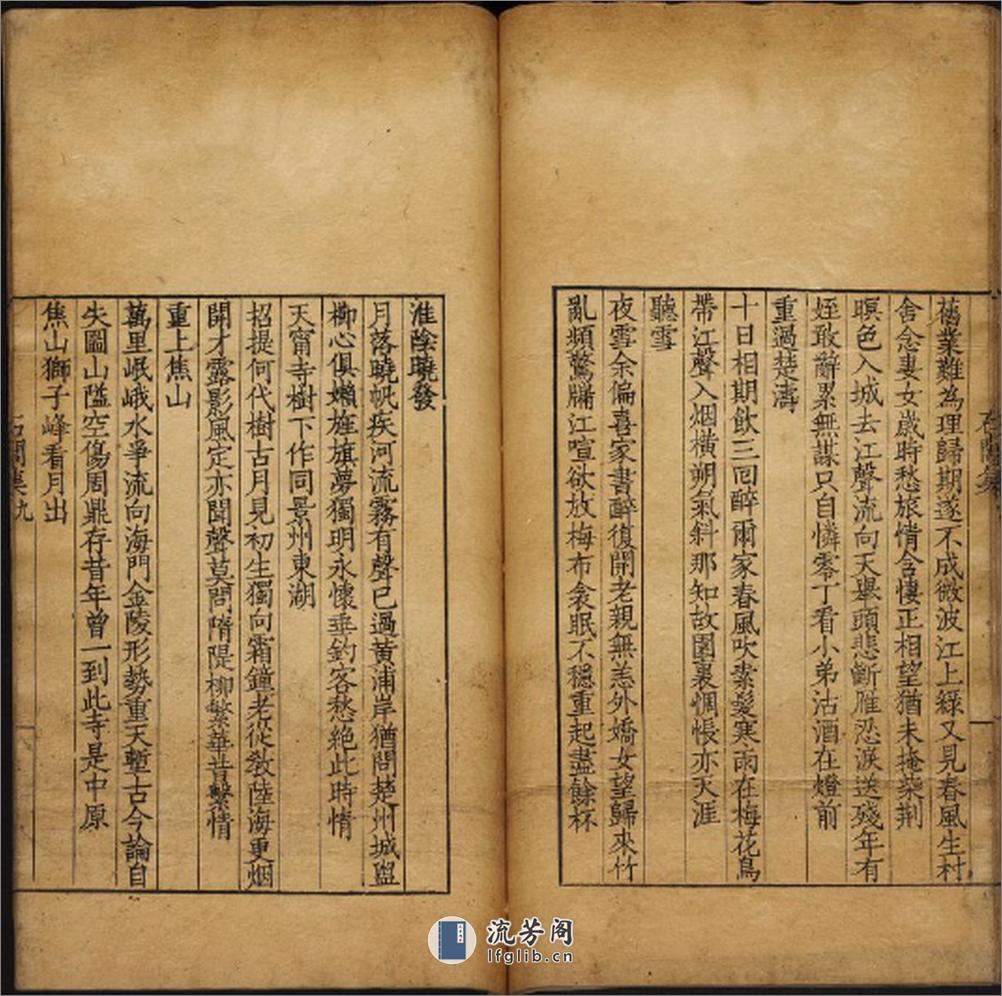 舊業難為理歸期遂不成微波江上綠又見春風生村
舍念妻女歲時愁旅情含悽正相望猶未掩柴荆
暝色入城去江聲流向天舉頭悲斷雁忍淚送殘年有
姪敢辭累無謀只自憐零丁看小弟沽酒在燈前
重過楚濤
十日相期飲三回醉爾家春風吹素髮寒雨在梅花鳥
帶江聲入烟橫朔氣斜那知故園裏惆悵亦天涯
聽雪
夜雪余偏喜家書醉復開老親無恙外嬌女望歸來竹
亂頻驚牖江喧欲放梅布衾眠不穩重起盡餘杯
淮陰曉發
月落曉帆疾河流霧有聲已過黄浦岸猶問楚州城盥
櫛心俱嬾旌旗夢獨明永懷垂釣客愁絕此時情
天甯寺樹下作同景州東湖
招提何代樹古月見初生獨向霜鐘老從敎陸海更烟
開才露影風定亦聞聲莫問隋隄柳繁華昔繫情
重上焦山
萬里岷峨水爭流向海門金陵形勢重天塹古今論自
失圌山隘空傷周鼎存昔年曾一到此寺是中原
焦山獅子峰看月出
石閭集
九
流芳阁
lfglib.cn